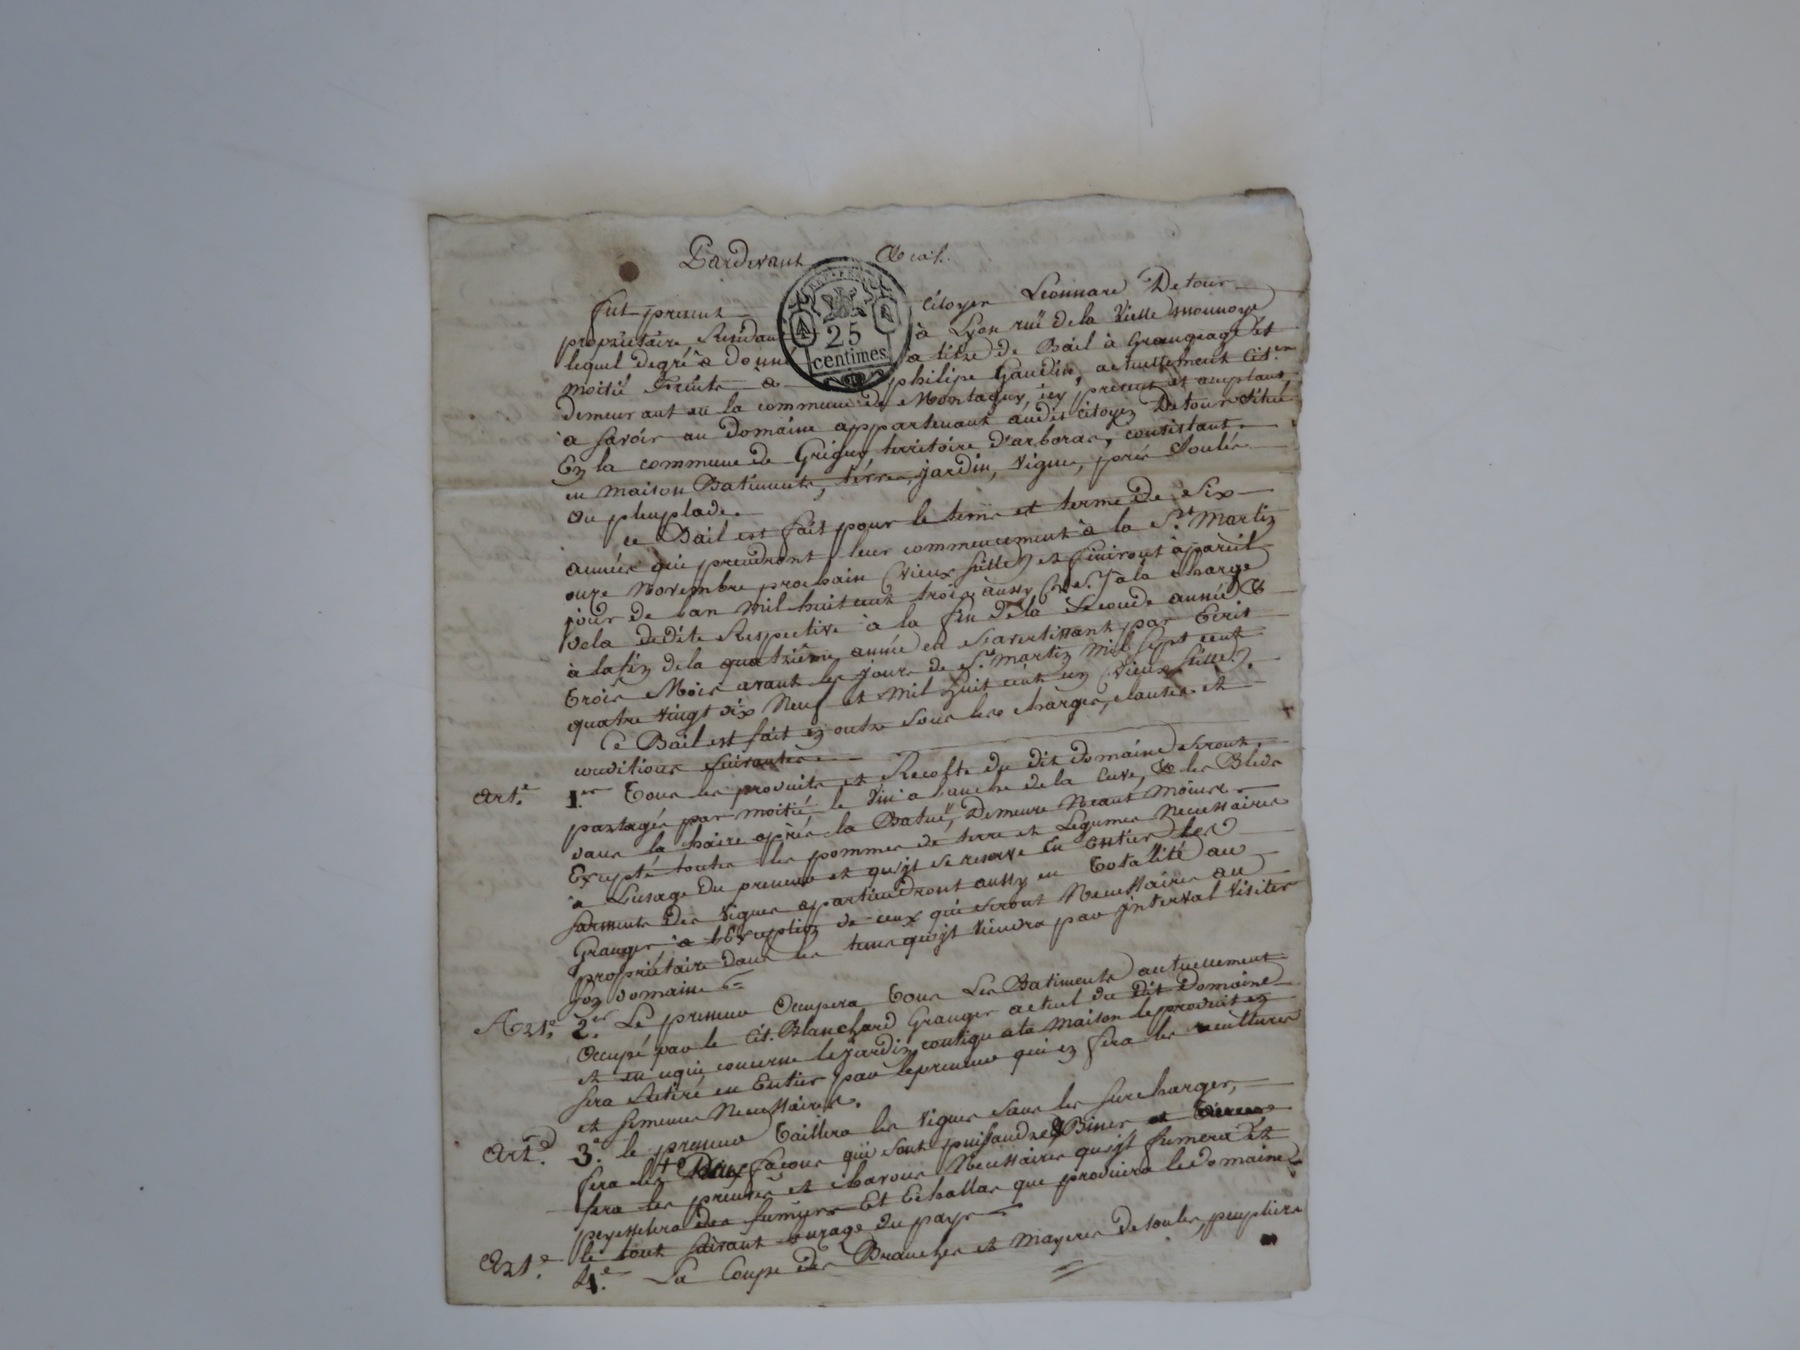 Pardevant &cat.
REP. FRA.
25
centimes
fut present citoyen Léonnard Detour
propriétaire Résidant à Lyon ruë de la Vielle monnoye
lequel degré à donné a titre de Bail à Grangeage et
moitié fruits a philipe Gaudin, actuellement Cit.en
demeurant en la commune de Montagny, icy présent et acceptant
a savoir un Domaine appartenant audit citoyen Detour situé
En la commune de Grigny, territoire d'arboras, consistant
en maison Batiments, terres, jardin, vignes, prés Soulés
ou peuplade.
ce Bail est fait pour le tems et terme de Six
années qui prendront leur commencement à la St Martin
onze Novembre prochain (vieux stille) et finiront à pareil
jour de lan mil huit cent trois aussy (V. S.) à la charge
de la dedite Respective à la fin de la seconde année &
à la fin de la quatrième année en s'avertissant par Ecrit
trois Mois avant les jours de St Martin mil sept cent
quatre vingt dix Neuf et mil huit cent un (vieux stille).
Ce Bail est fait en outre sous les charges, clauses et
conditions suivantes
Art.e 1.er Tous les produits et Recolte du dit domaine seront
partagés par moitié, le vin a lanche de la Cuve, & les Bleds
dans la haire après la Batuë,
Excepté toutes les pommes de terre et Legumes Necessaires
à Lusage du preneur et qu'jl se reserve En Entier les
sarments des vignes apartiendront aussy en totalité au
Granger à l'Exception de ceux qui seront Necessaires au
propriétaire dans les tems qu'jl viendra par jnterval visiter
son domaine
Art.e 2.er Le preneur Occupera tous Les Batiments actuellement
Occupé par le Cit. Blanchard Granger actuel du dit Domaine
et en ce qui concerne le jardin contigu a la Maison le produit en
sera Retiré en Entier par le preneur qui en fera les cultures
et semences Necessaires.
Art.e 3.e le preneur Taillera les vignes sans les surcharger,
fera les Deux façons qui sont Biner et
fera les et Necessaires qu'jl fumera et
des fumiers Et Echallas que produira le domaine
le tout suivant l'usage du pays
Art.e 4.e La Coupe des Branches et mayeres de soules, peupliers